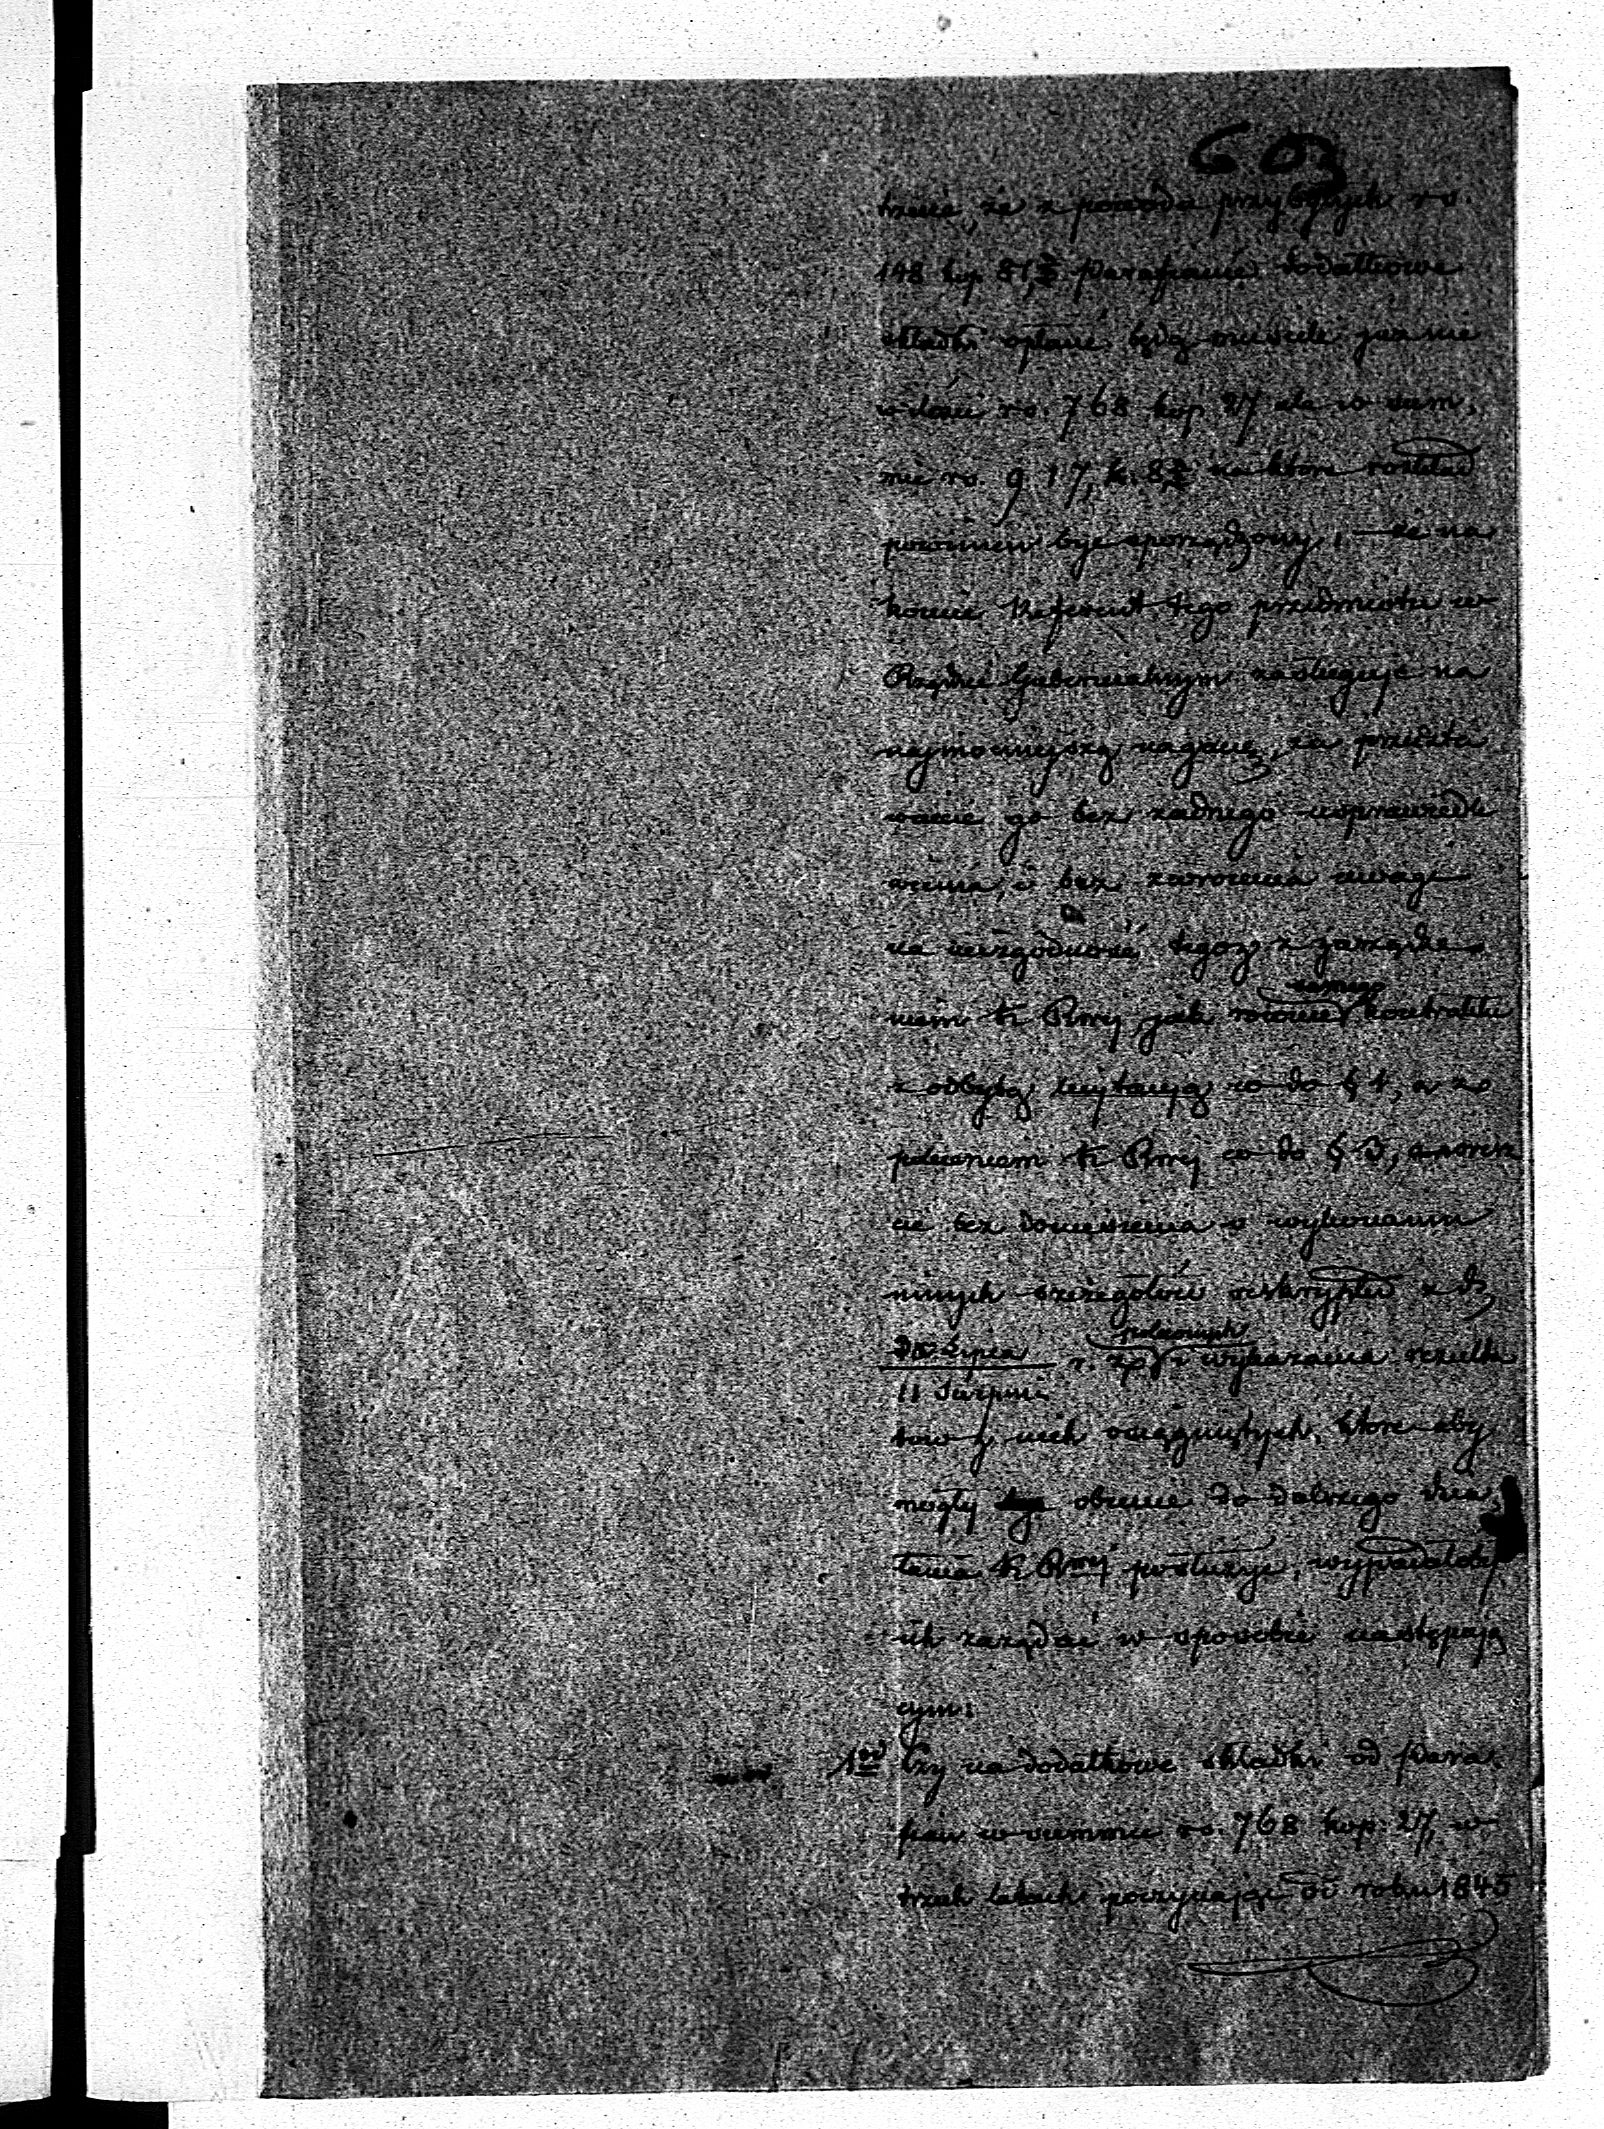 603
trzecie, że z powodu przybyłych rs.
148 kop. 81½ Parafianie dodatkowe
składki opłacić będą musieli już nie
w ilości rs. 768 kop. 27 ale w sum,
mie rs. 917, k. 8½ na które rozkład
powinien być sporządzony, – że na
koniec Referent tego przedmiotu w
Rządzie Gubernialnym zasługuje na
najmocniejszą naganę, za przedsta
wienie go bez żadnego usprawiedli
wienia, i bez zwrócenia uwagi
na niezgodność tegoż z zarządze
niem K. Rzowej jak równie samego kontraktu
z odbytą licytacją co do § 1, a z
poleceniem K. Rzowej co do § 3, a wresz
cie bez doniesienia o wykonaniu
innych szczegółów reskryptu z d.
30 Lipca
11 Sierpnia
r. z. poleconych i wykazania rezulta
tów z nich osiągniętych, które aby
mogły obecnie do dalszego dzia,
łania K. Rzowej posłużyć, wypadałoby
ich zażądać w sposobie następują
cym:
1od Czy na dodatkowe składki od Para,
fian w summie rs. 768 kop. 27, w
trzech latach poczynając od roku 1845